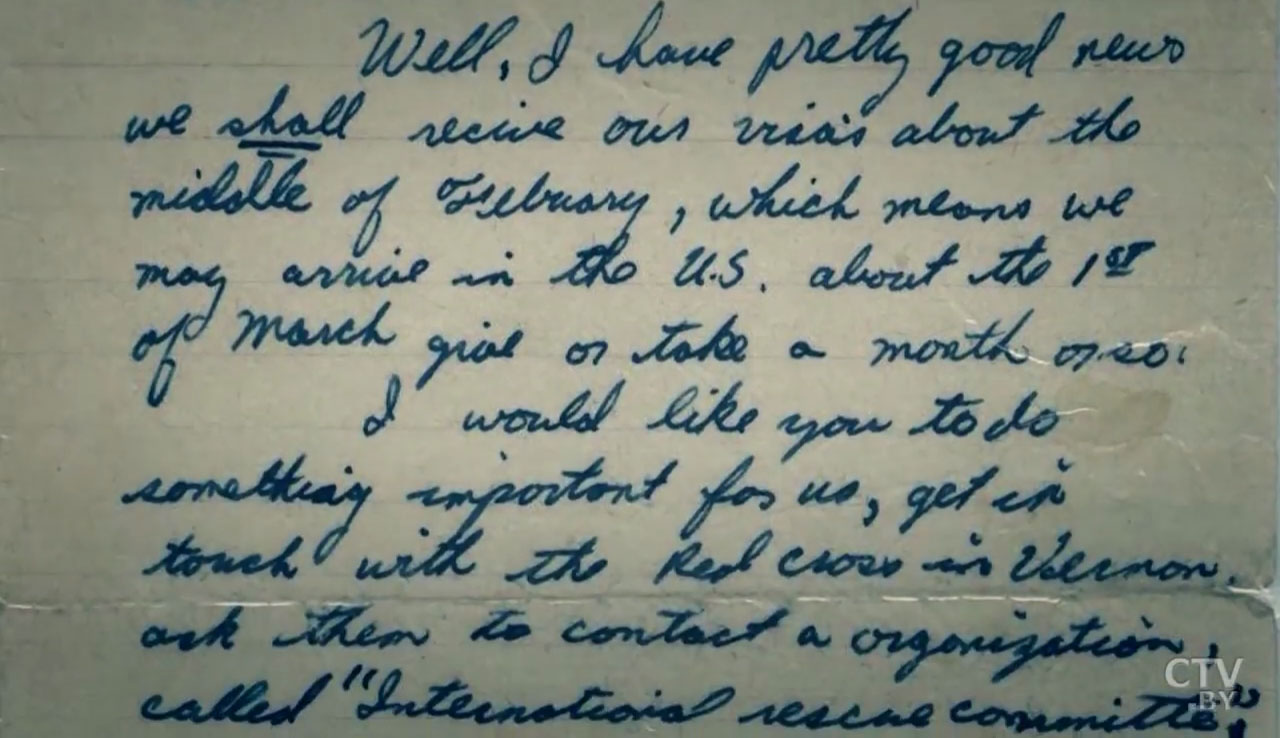 Well, I have pretty good news
we shall recive our visas about the
middle of February, which means we
may arrive in the U.S. about the 1st
of March give or take a month or so.
I would like you to do
something important for us, get in
touch with the Red cross in Vernon.
ask them to contact a organization,
called "International rescue committe."
CTV
.BY